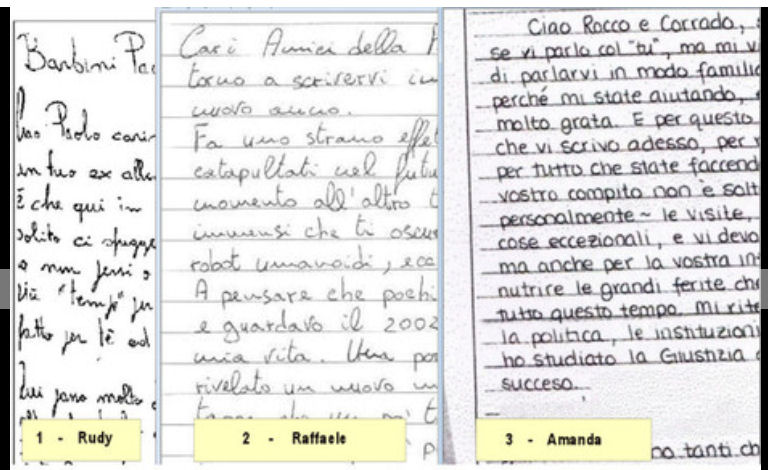 Barbini Pao
Ciao Paolo cari
un tuo ex alle
È che qui in
solito ci sfugge
"tempo" per
fatto per tè ed
molto
1 - Rudy
Cari Amici della
torno a scrivervi in
nuovo anno.
Fa uno strano effet
catapultati nel futu
momento all'altro t
immensi che ti oscur
robot umanoidi, ecc
A pensare che pochi
e guardavo il 2002
mia vita. Una por
rivelato un nuovo m
2 - Raffaele
Ciao Rocco e Corrado,
se vi parlo col "tu", ma mi v
di parlarvi in modo familia
perché mi state aiutando,
molto grata. E per questo
che vi scrivo adesso, per
per tutto che state faccend
vostro compito non è solt
personalmente ~ le visite,
cose eccezionali, e vi devo
ma anche per la vostra in
nutrire le grandi ferite che
tutto questo tempo. Mi rite
la politica, le instituzioni
ho studiato la Giustizia
succeso.
3 - Amanda
no tanti ch